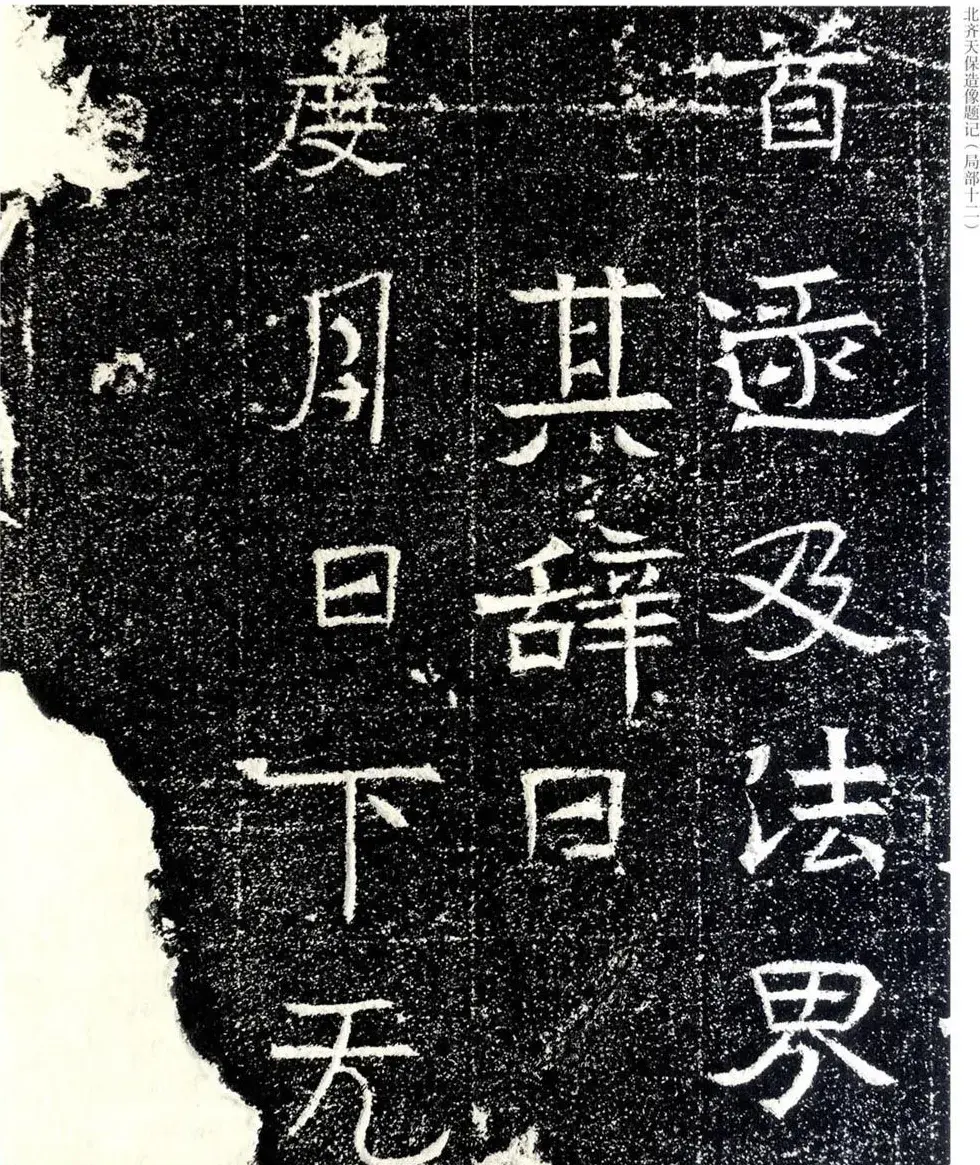 北齐天保造像题记（局部十二）
首逯及法界
其辞曰
度月日下无